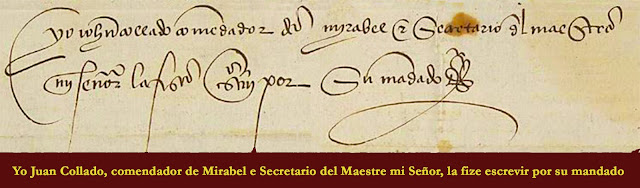 yo iohn collado comēdador de mirabel e Secretario del maestre
mi señor la fise escrẜ por Su mandado
Yo Juan Collado, comendador de Mirabel e Secretario del Maestre mi Señor, la fize escrevir por su mandado